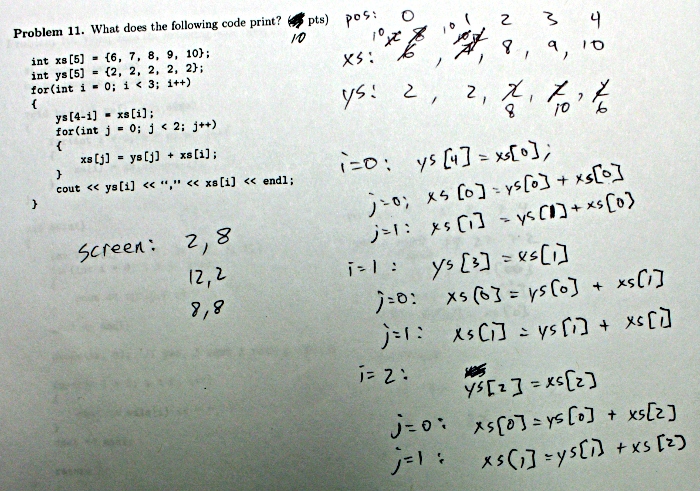 Problem 11. What does the following code print? ( pts)
10
int xs[5] = {6, 7, 8, 9, 10};
int ys[5] = {2, 2, 2, 2, 2};
for(int i = 0; i < 3; i++)
{
ys[4-i] = xs[i];
for(int j = 0; j < 2; j++)
{
xs[j] = ys[j] + xs[i];
}
cout << ys[i] << "," << xs[i] << endl;
}
screen: 2,8
12,2
8,8
pos: 0 1 2 3 4
10 8 10
xs: 6, , 8, 9, 10
ys: 2, 2, 2, 2, 2
8 10 6
i=0: ys[4] = xs[0];
j=0; xs[0] = ys[0] + xs[0]
j=1: xs[1] = ys[1] + xs[0]
i=1: ys[3] = xs[1]
j=0: xs[0] = ys[0] + xs[1]
j=1: xs[1] = ys[1] + xs[1]
i=2: ys[2] = xs[2]
j=0: xs[0] = ys[0] + xs[2]
j=1: xs[1] = ys[1] + xs[2]